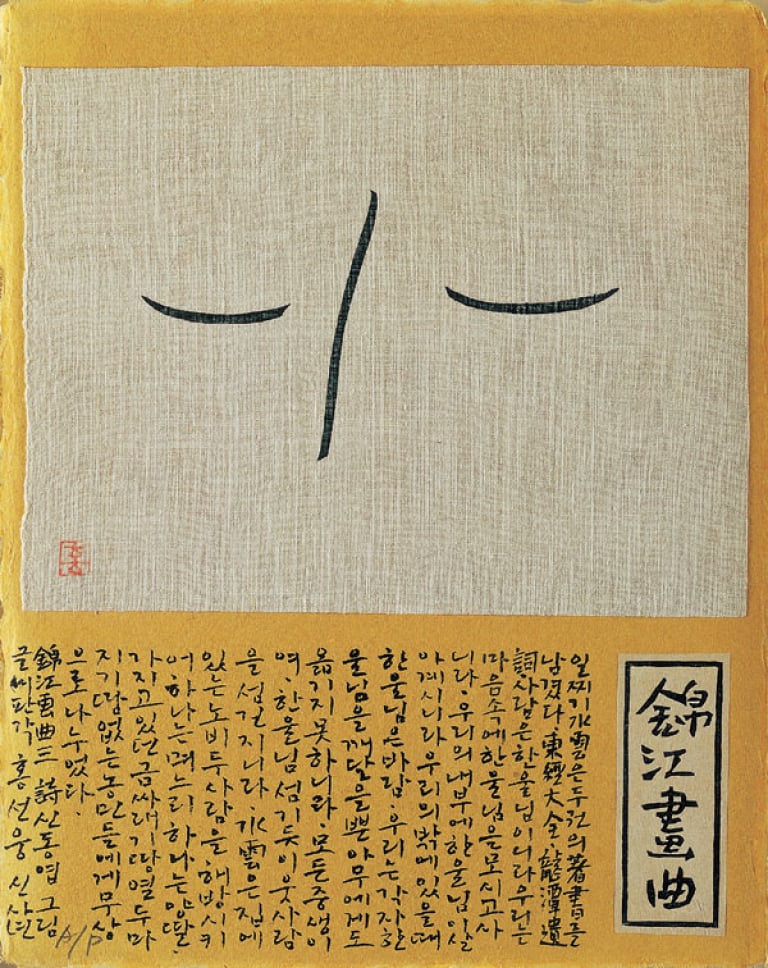 錦江畫曲
일찌기水雲은두권의著書를
남겼다.東經大全.龍潭遺
詞.사람은한울님이니라우리는
마음속에한울님을모시고사
니라.우리의내부에한울님이살
아계시니라우리의밖에있을때
한울님은바람.우리는각자한
울님을깨달을뿐아무에게도
옮기지못하니라.모든중생이
여.한울님섬기듯이웃사람
을섬길지니라.水雲은집에
있는노비두사람을해방시키
어하나는며느리하나는양딸.
가지고있던금싸래기땅열두마
지기땅없는농민들에게무상
으로나누었다.
錦江畫曲三 詩신동엽 그림
글씨판각 홍선웅 신사년
A/P